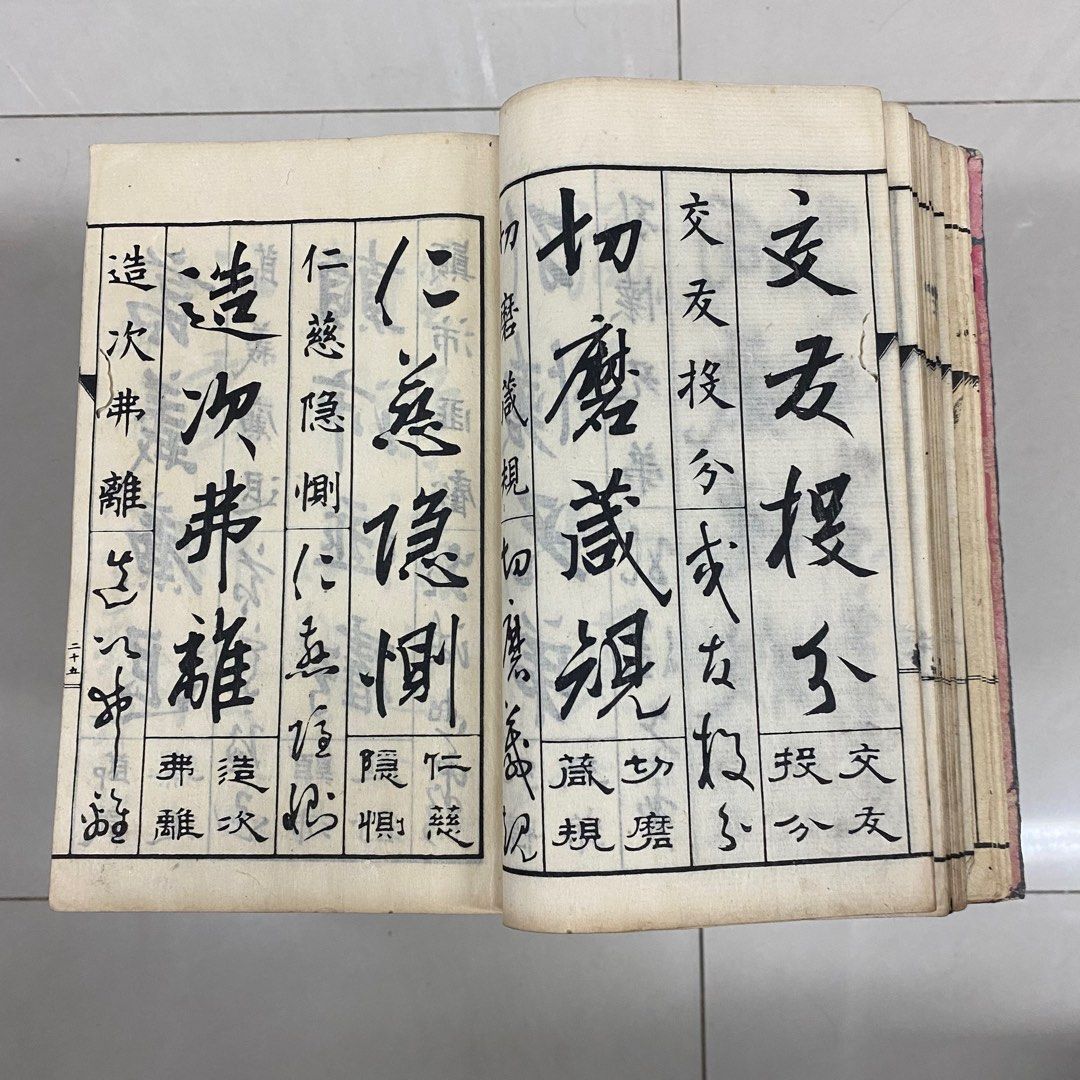 交友投分
交友
投分
交友投分
交友投分
切磨箴規
切磨
箴規
切磨箴規
切磨箴規
仁慈隱惻
仁慈
隱惻
仁慈隱惻
仁慈隱惻
造次弗離
造次
弗離
造次弗離
造次弗離
二十五